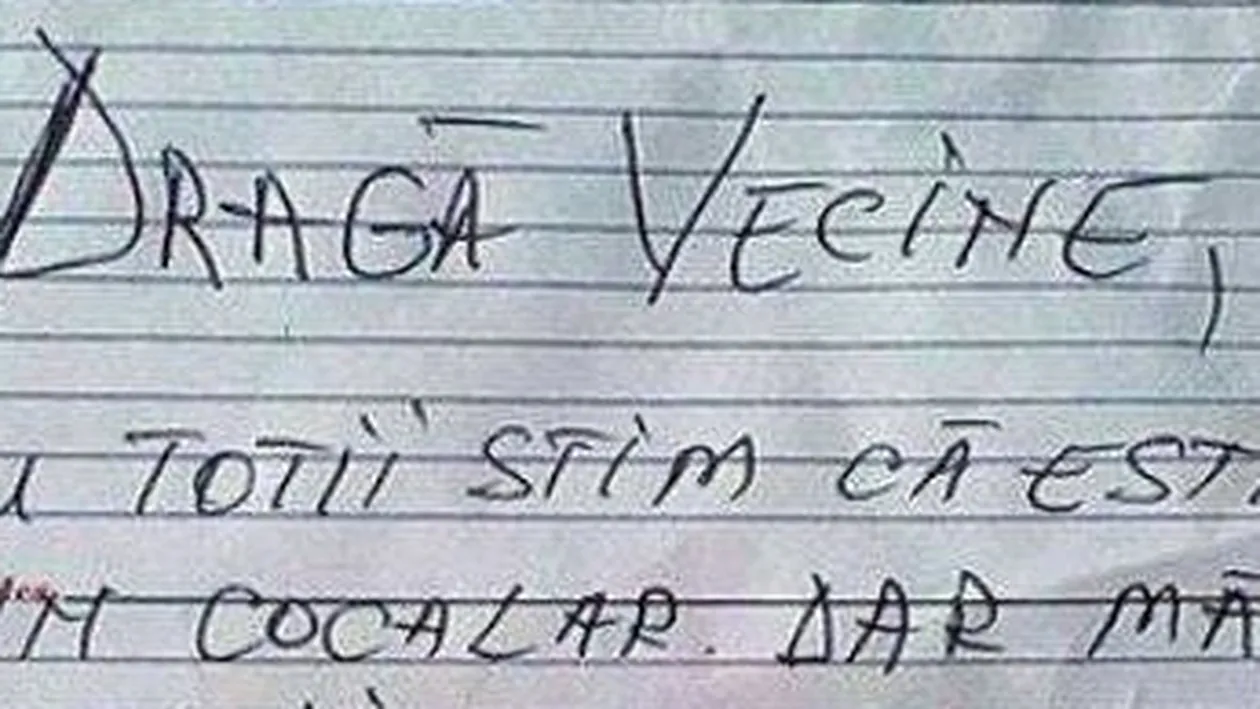 DRAGĀ VECINE,
TOTII STIM CĀ EST
COCALAR. DAR MĀ